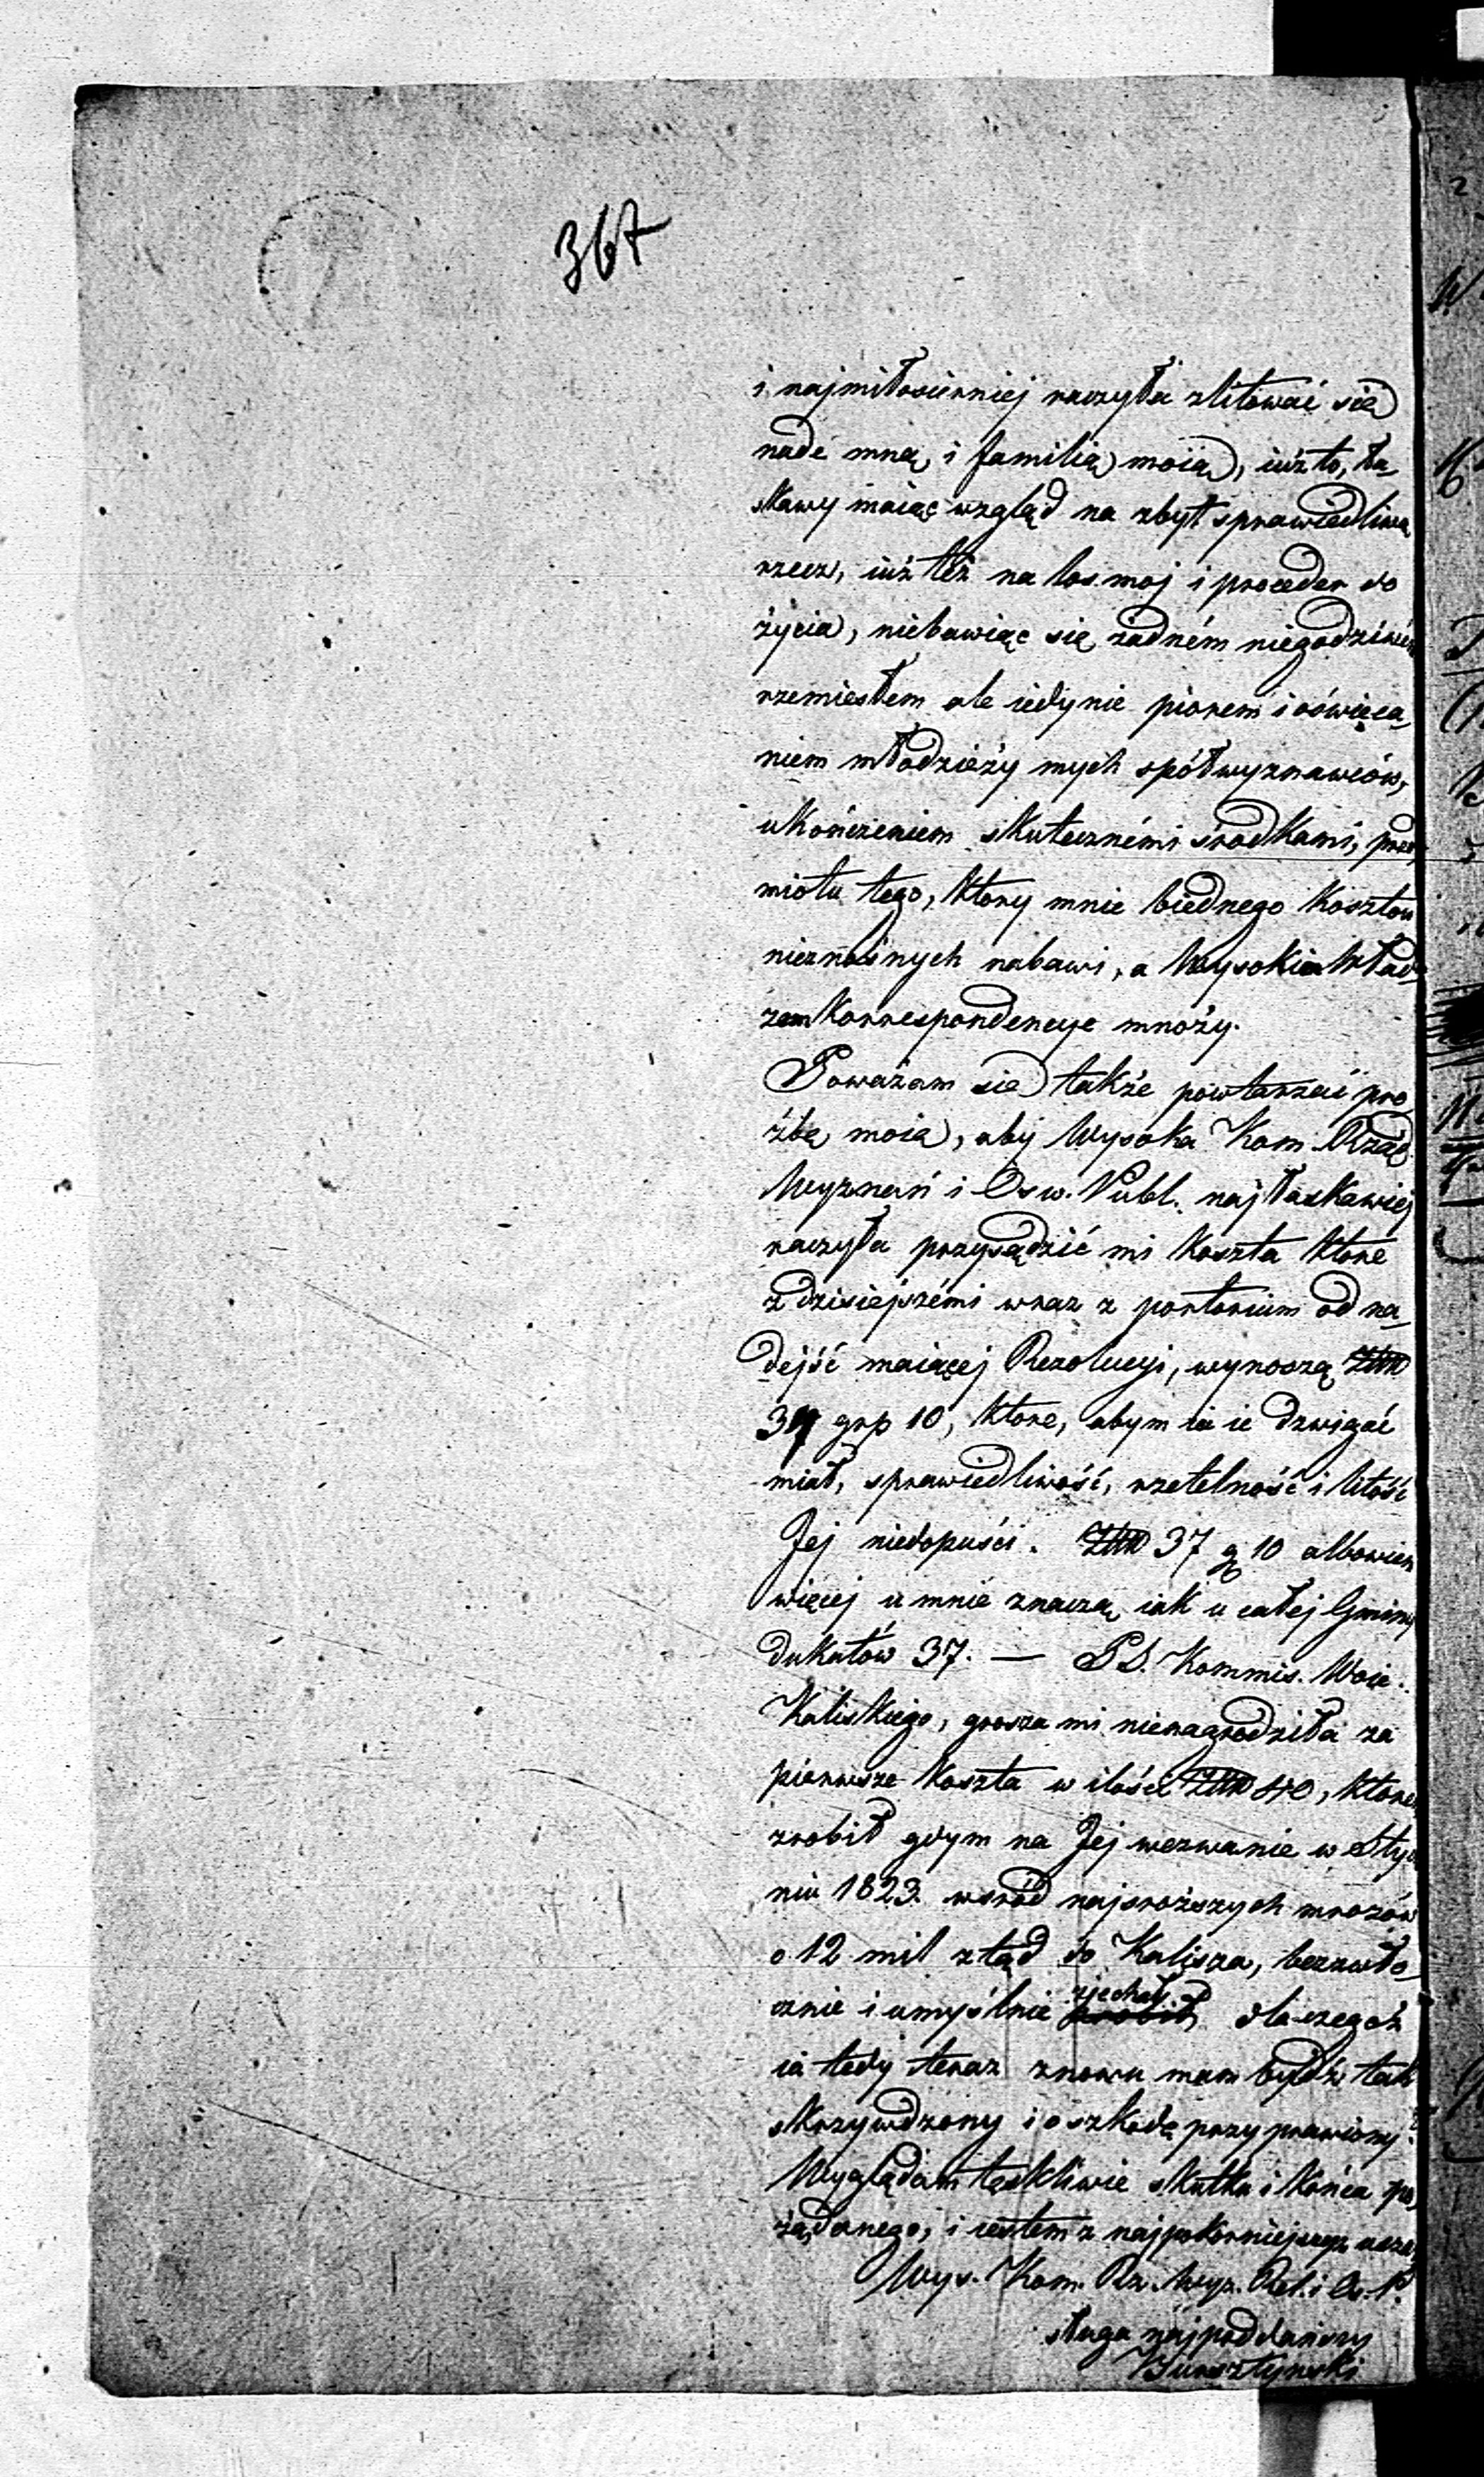 367
i najmiłosierniej raczyła zlitować się
nade mną, i familią moią, iuż to, ła-
skawy maiąc wzgląd na zbyt sprawiedliwą
rzecz, iuż też na los moj i proceder do
życia, niebawiąc się żadném niegodziwém
rzemiesłem ale iedynie piorem i oświeca-
niem młodzieży mych spółwyznawców,
ukończeniem skutecznémi środkami, prze-
miotu tego, ktory mnie biednego kosztow
nieznośnych nabawi, a Wysokim Wład-
zom korrespondencye mnoży.
Poważam się także powtarzać pro-
źbę moią, aby Wysoka Kom. Rząd.
Wyznań i Osw. Publ. najłaskawiej
raczyła przysądzić mi koszta ktore
z dzisiejszémi wraz z portorium od na-
dejść maiącej Rezolucyi, wynoszą
37 grp 10, ktore, abym ia ie dzwigać
miał, sprawiedliwość, rzetelność i litość
Jej niedopuści. 37 g 10 albowiem
więcej u mnie znaczą iak u całej Gminy
dukatów 37. — PS. Kommis. Woie.
Kaliskiego, grosza mi nienagrodziła za
pierwsze koszta w ilości 40, ktore
zrobił gdym na Jej wezwanie w Stycz
niu 1823. wsród najsroższych mrozów
o 12 mil ztąd do Kalisza, bezzwło-
cznie i umyślnie zjechał, dla czegoż
ia tedy teraz znowu mam bydź tak
skrzywdzony i o szkodę przyprawiony?
Wyglądam tęskliwie skutku i końca po-
żądanego, i iestem z najpokorniejszym
Wys. Kom. Rz. Wyz. Rel. i Os. P.
sługa najpoddańszy
Bursztynski